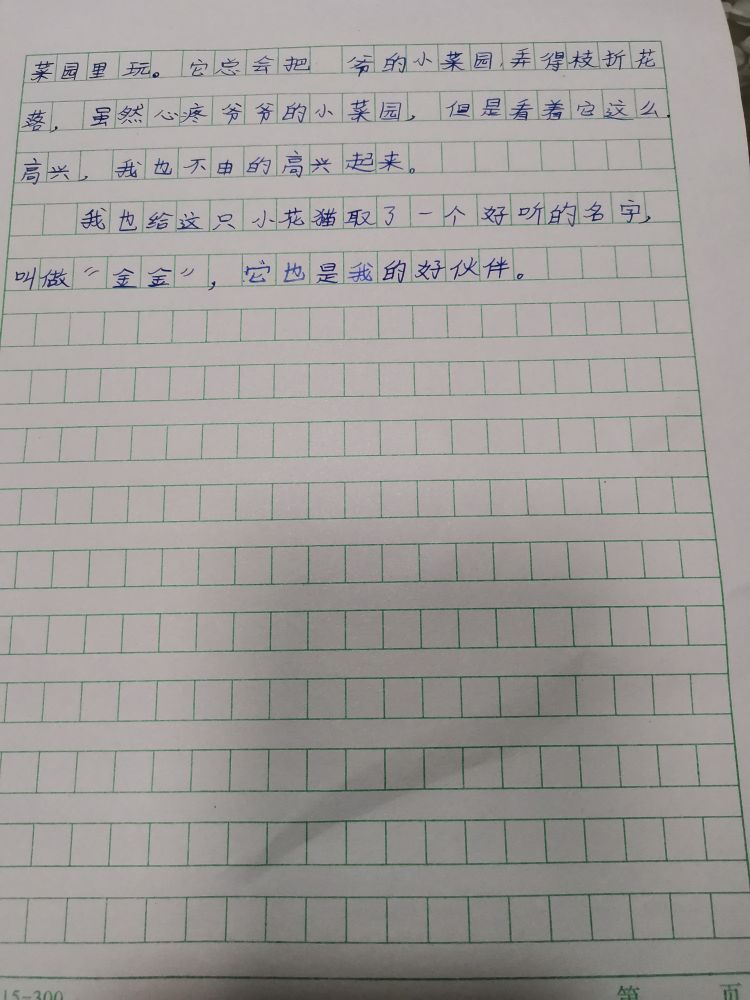 菜园里玩。它总会把 爷的小菜园,弄得枝折花
落，虽然心疼爷爷的小菜园，但是看着它这么
高兴，我也不由的高兴起来。
我也给这只小花猫取了一个好听的名字，
叫做“金金”，它也是我的好伙伴。
15=300 第 页